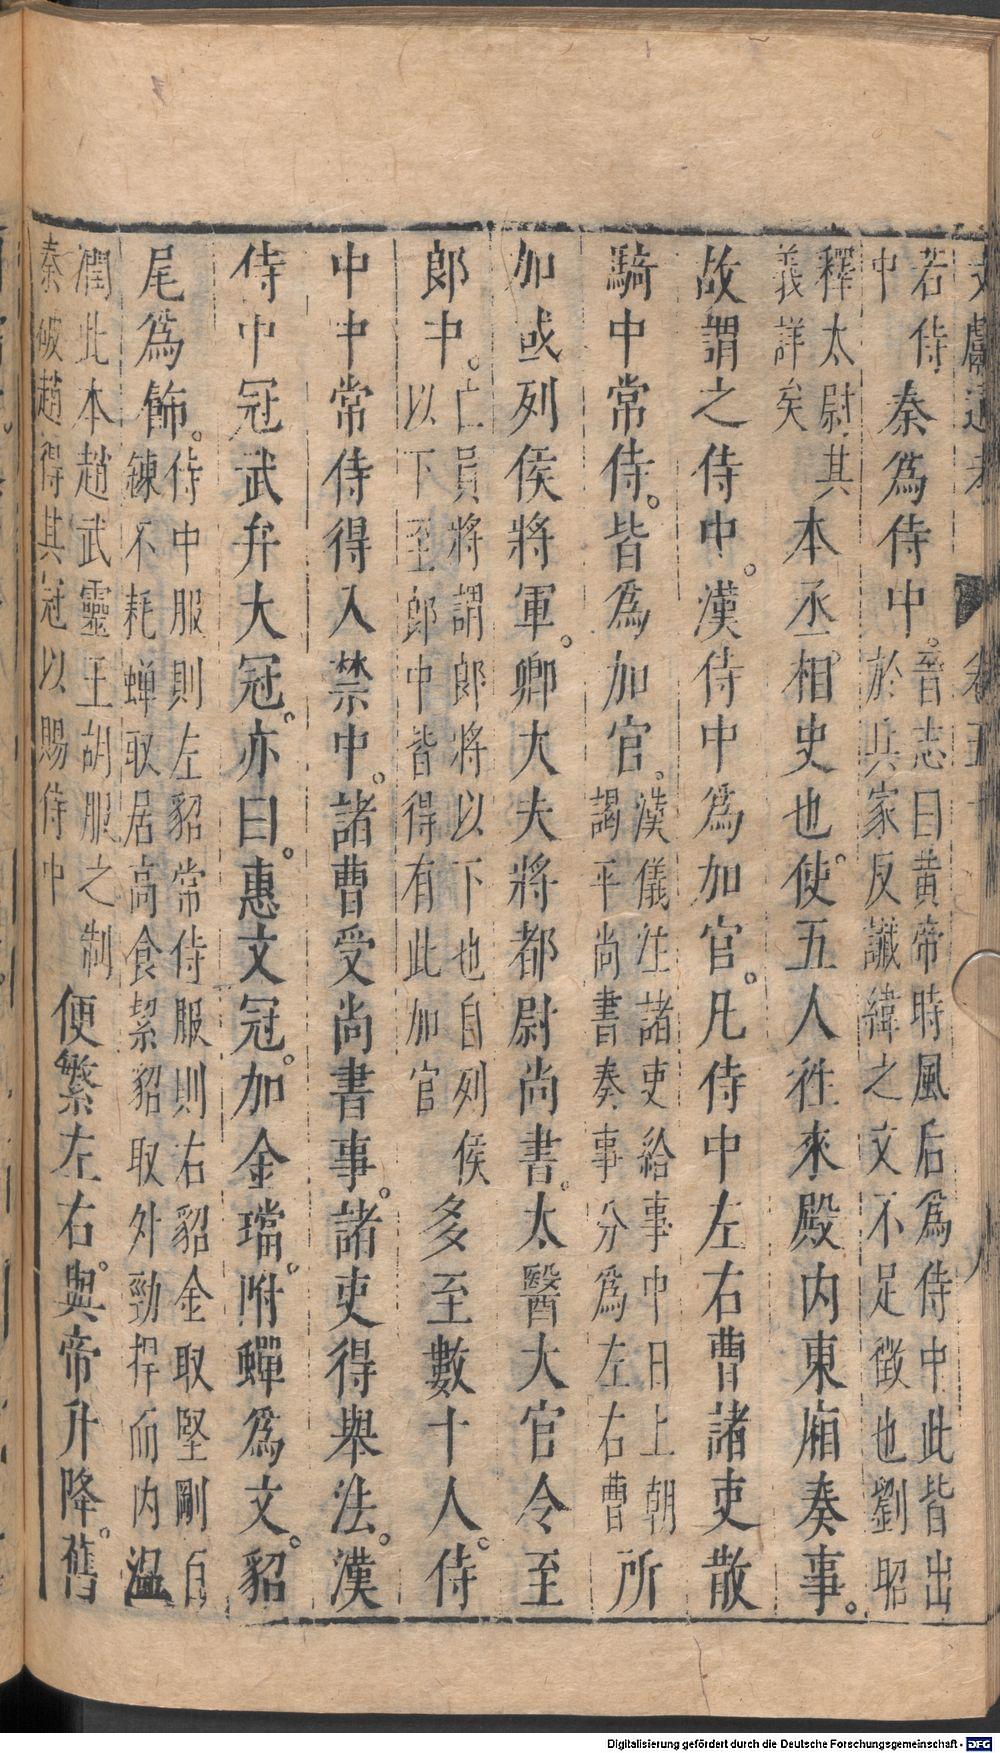 文獻通考 卷五十 八
若侍
中
秦爲侍中。
晉志曰黃帝時風后爲侍中此皆出
於兵家反讖緯之文不足徵也劉昭
釋太尉其
義詳矣
本丞相。史也。使五人徃來殿内東廂奏事。
故謂之侍中。漢侍中爲加官。凡侍中左右曹諸吏散
騎中常侍。皆爲加官。
漢儀注諸吏給事中日上朝
謁平尚書奏事分爲左右曹
所
加或列侯將軍。卿大夫將都尉尚書。太醫大官令至
郎中。
亡員將謂郎將以下也自列侯
以下至郎中皆得有此加官
多至數十人。侍
中中常侍得入禁中。諸曹受尚書事。諸吏得舉法。漢
侍中冠武弁大冠。亦曰。惠文冠。加金璫。附蟬爲文。貂
尾爲飾。
侍中服則左貂常侍服則右貂金取堅剛百
鍊不耗蟬取居高食絜貂取外勁捍而内溫
潤此本趙武靈王胡服之制
秦破趙得其冠以賜侍中
便繁左右。與帝升降。舊
Digitalisierung gefördert durch die Deutsche Forschungsgemeinschaft - DFG